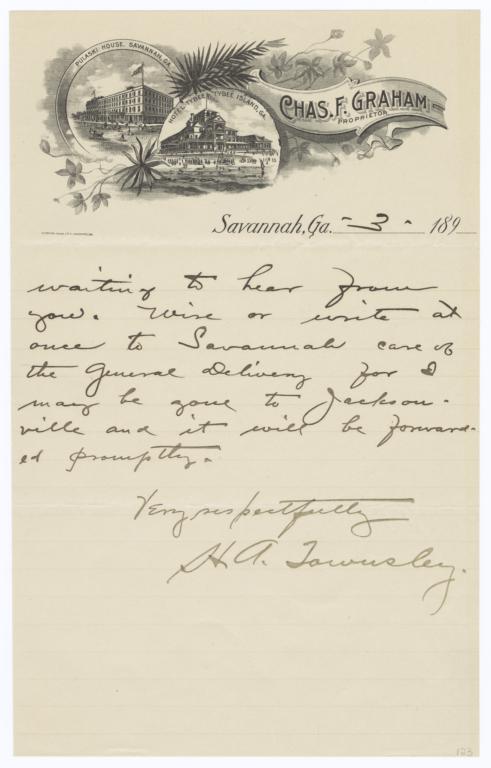 PULASKI HOUSE. SAVANNAH, GA.
HOTEL TYBEE, TYBEE ISLAND, GA.
CHAS. F. GRAHAM
PROPRIETOR
Savannah, Ga. - 3 - 189
waiting to hear from
you. Wire or write at
once to Savannah care of
the General Delivery for I
may be gone to Jackson-
ville and it will be forward-
ed promptly.
Very respectfully
H A. Townsley.
123